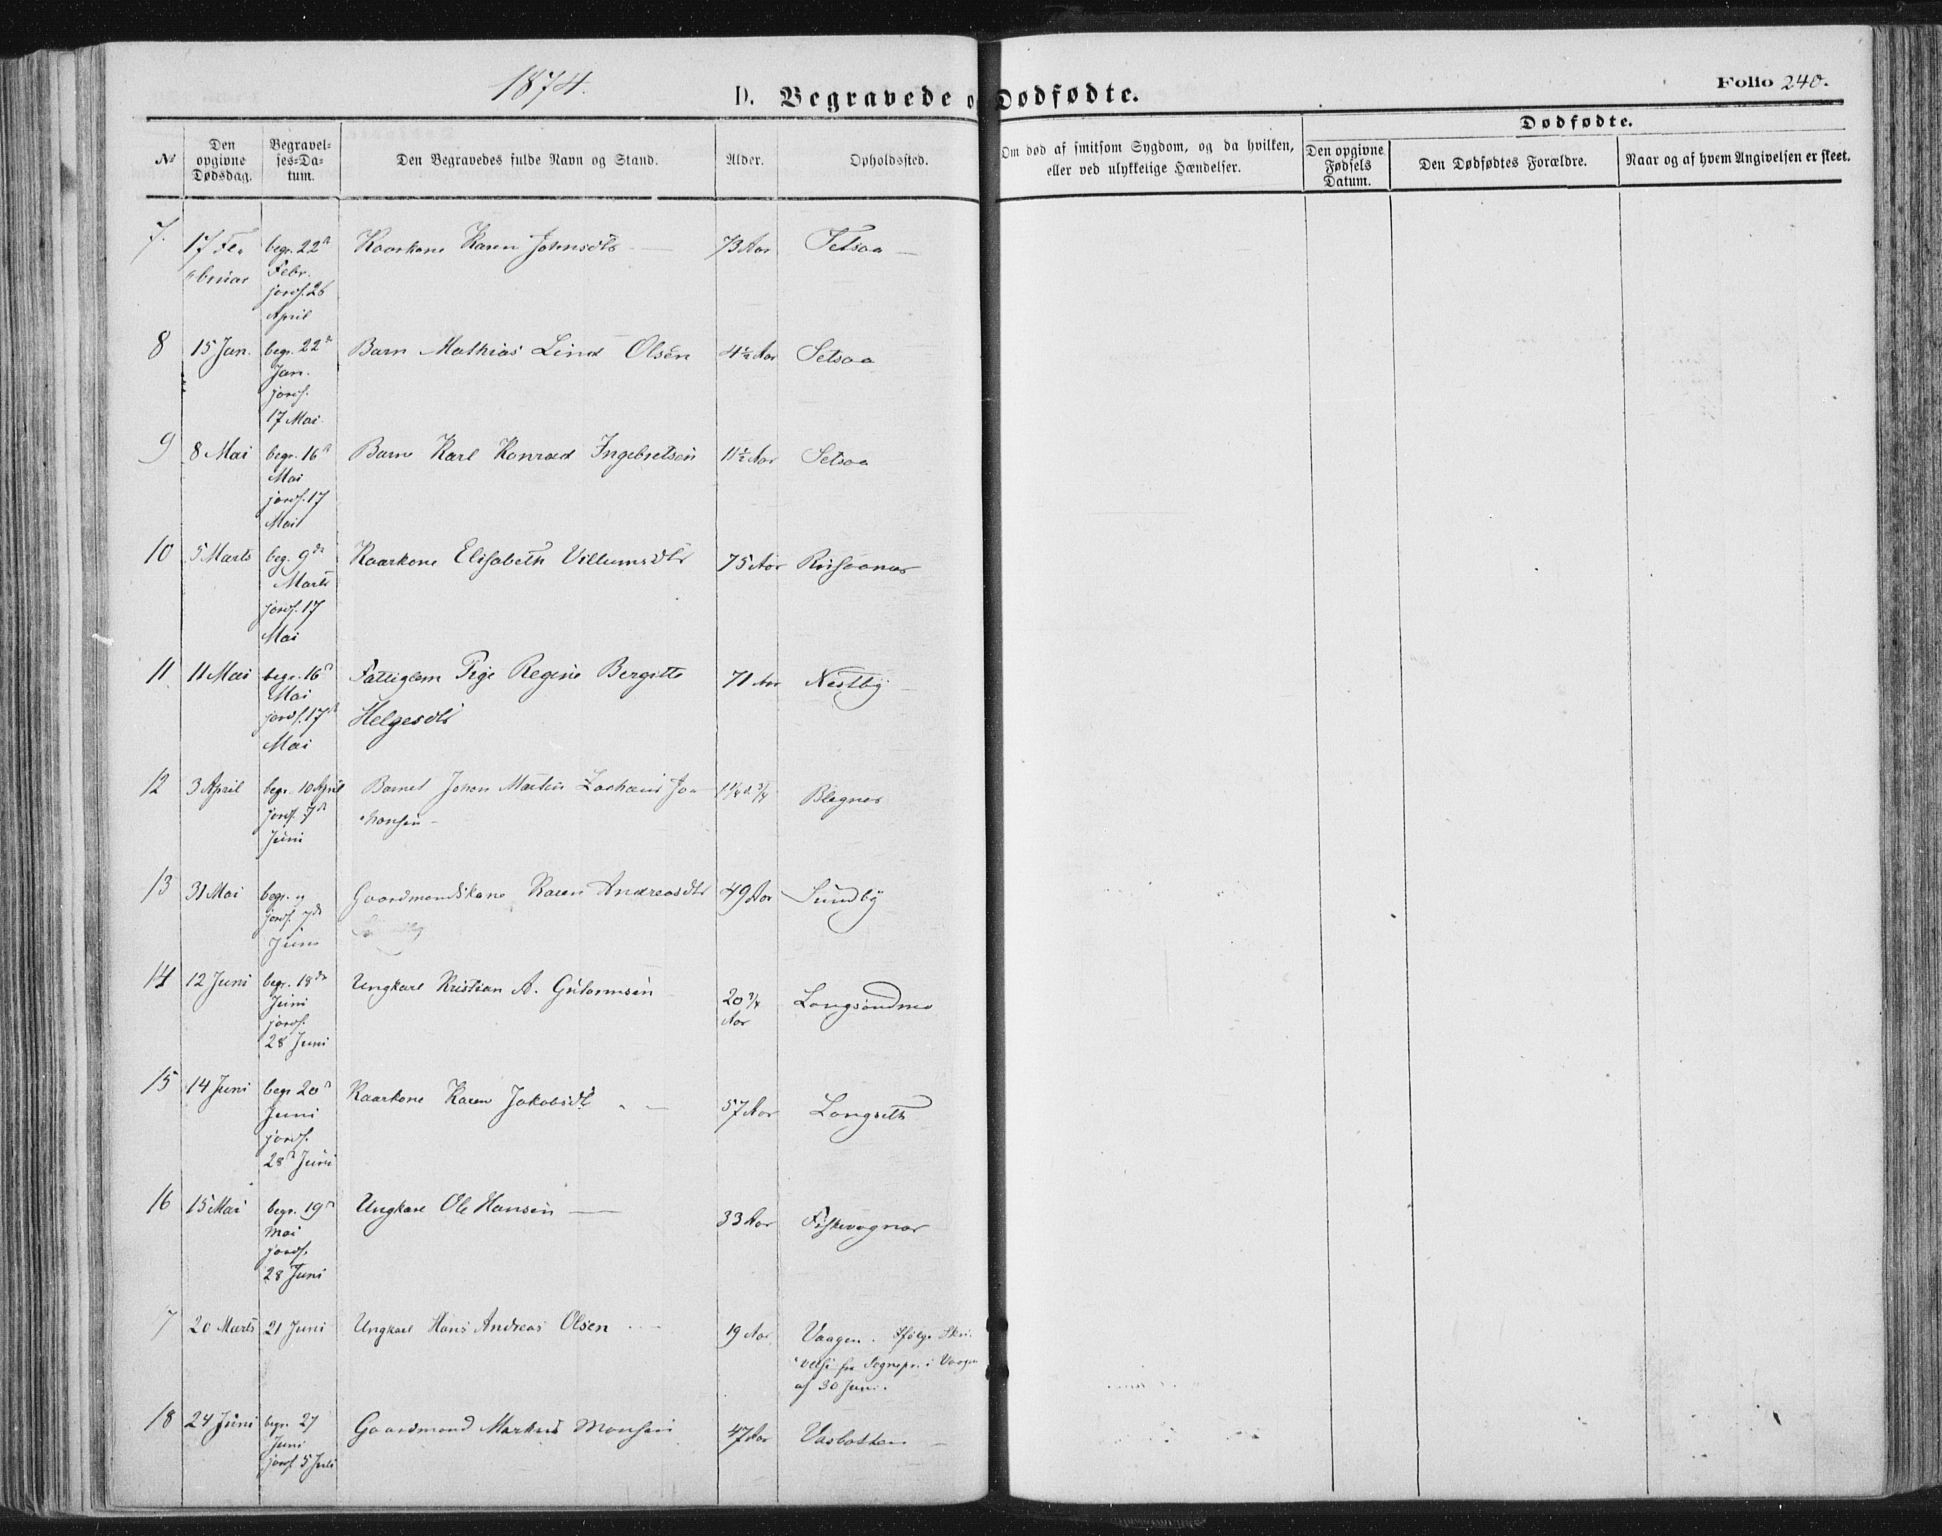 1874.
D. Begravede o Dødfødte.
Folio 240.
№
Den opgivne Dødsdag.
Begravel-ses-Da-tum.
Den Begravedes fulde Navn og Stand.
Alder.
Opholdssted.
Om død af smitsom Sygdom, og da hvilken, eller ved ulykkelige Hændelser.
Dødfødte.
Den opgivne Fødsels Datum.
Den Dødfødtes Forældre.
Naar og af hvem Angivelsen er skeet.
7. 17 Fe- begr. 22d Kaarkone Karen Johnsdtr 73 Aar Setsaa
bruar Febr.
jordf. 26
April
8 15 Jan. begr. 22d Barn Mathias Lind Olsen 4½ Aar Setsaa
Jan.
jordf.
17 Mai
9 8 Mai begr. 16d Barn Karl Konrad Ingebretsen 11½ Aar Setsaa
Mai
jordf. 17
Mai
10 5 Marts beg. 9de Kaarkone Elisabeth Villumsdtr 75 Aar
Marts
jordf. 17
Mai
11 11 Mai begr. 16d Fattiglem Pige Regine Bergitte 71 Aar Nestby
Mai
jordf. 17d Helgesdtr
Mai
12 3 April begr. 10 April Barnet Johan Martin Zacharis Jo-
jordf. 7de hansen
Juni
13 31 Mai begr. og Gaardmandskone Karen Andreasdtr 49 Aar Sundby
jordf. 7de
Juni
14 12 Juni begr. 18de Ungkarl Kristian A. Gutormsen 20 3/4 Langsandmo
Juni Aar
jordf.
28 Juni
15 14 Juni begr 20d Kaarkone Karen Jakobsdtr 57 Aar Langseth
Juni
jordf.
28d Juni
16 15 Mai begr. 19d Ungkarl Ole Hansen 33 Aar Fiskvagnar
Mai
jordf.
28 Juni
7 20 Marts 21 Juni Ungkarl Hans Andreas Olsen 19 Aar Vaagen. Ifølge Skri-
velse fra Sognepr. i Vaagen
af 30 Juni.
18 24 Juni begr. 27 Gaardmand Markus Monsen 47 Aar Vasbotten
Juni
jordf 5 Juli